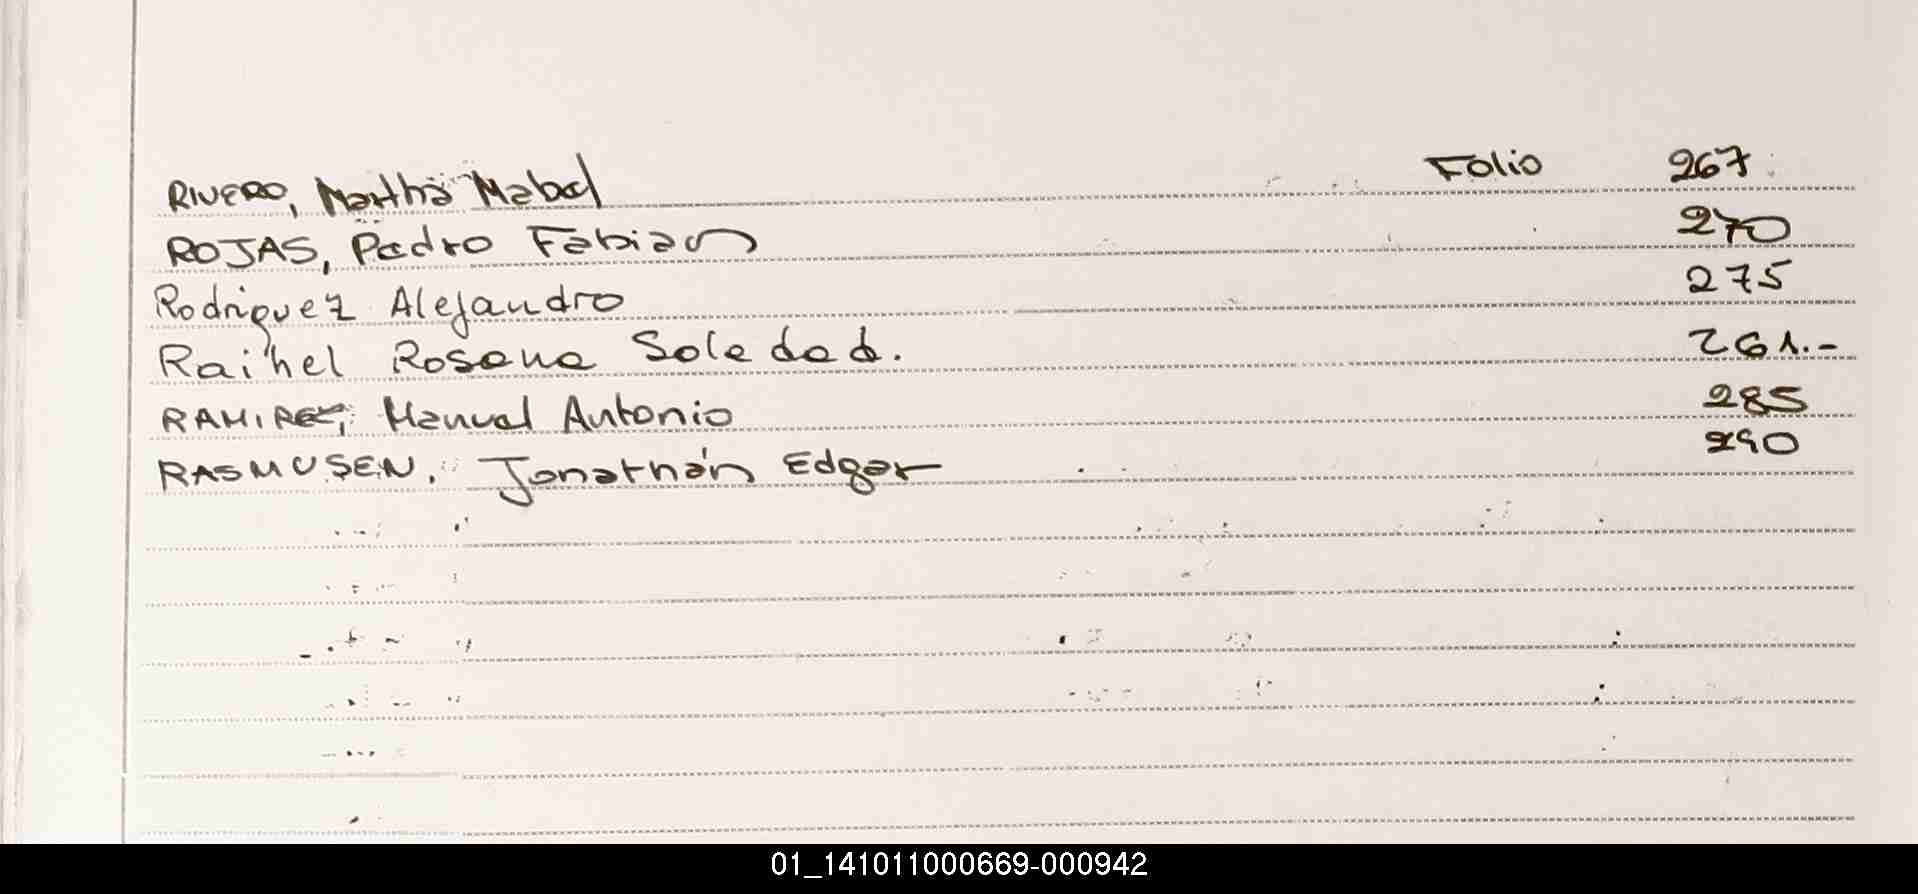 RIVERO, Martha Mabel Folio 267
ROJAS, Pedro Fabian 270
Rodriguez Alejandro 275
Raihel Rosana Soledad. 261.-
RAMIREZ, Manuel Antonio 285
RASMUSEN, Jonathán Edgar 290
01_141011000669-000942